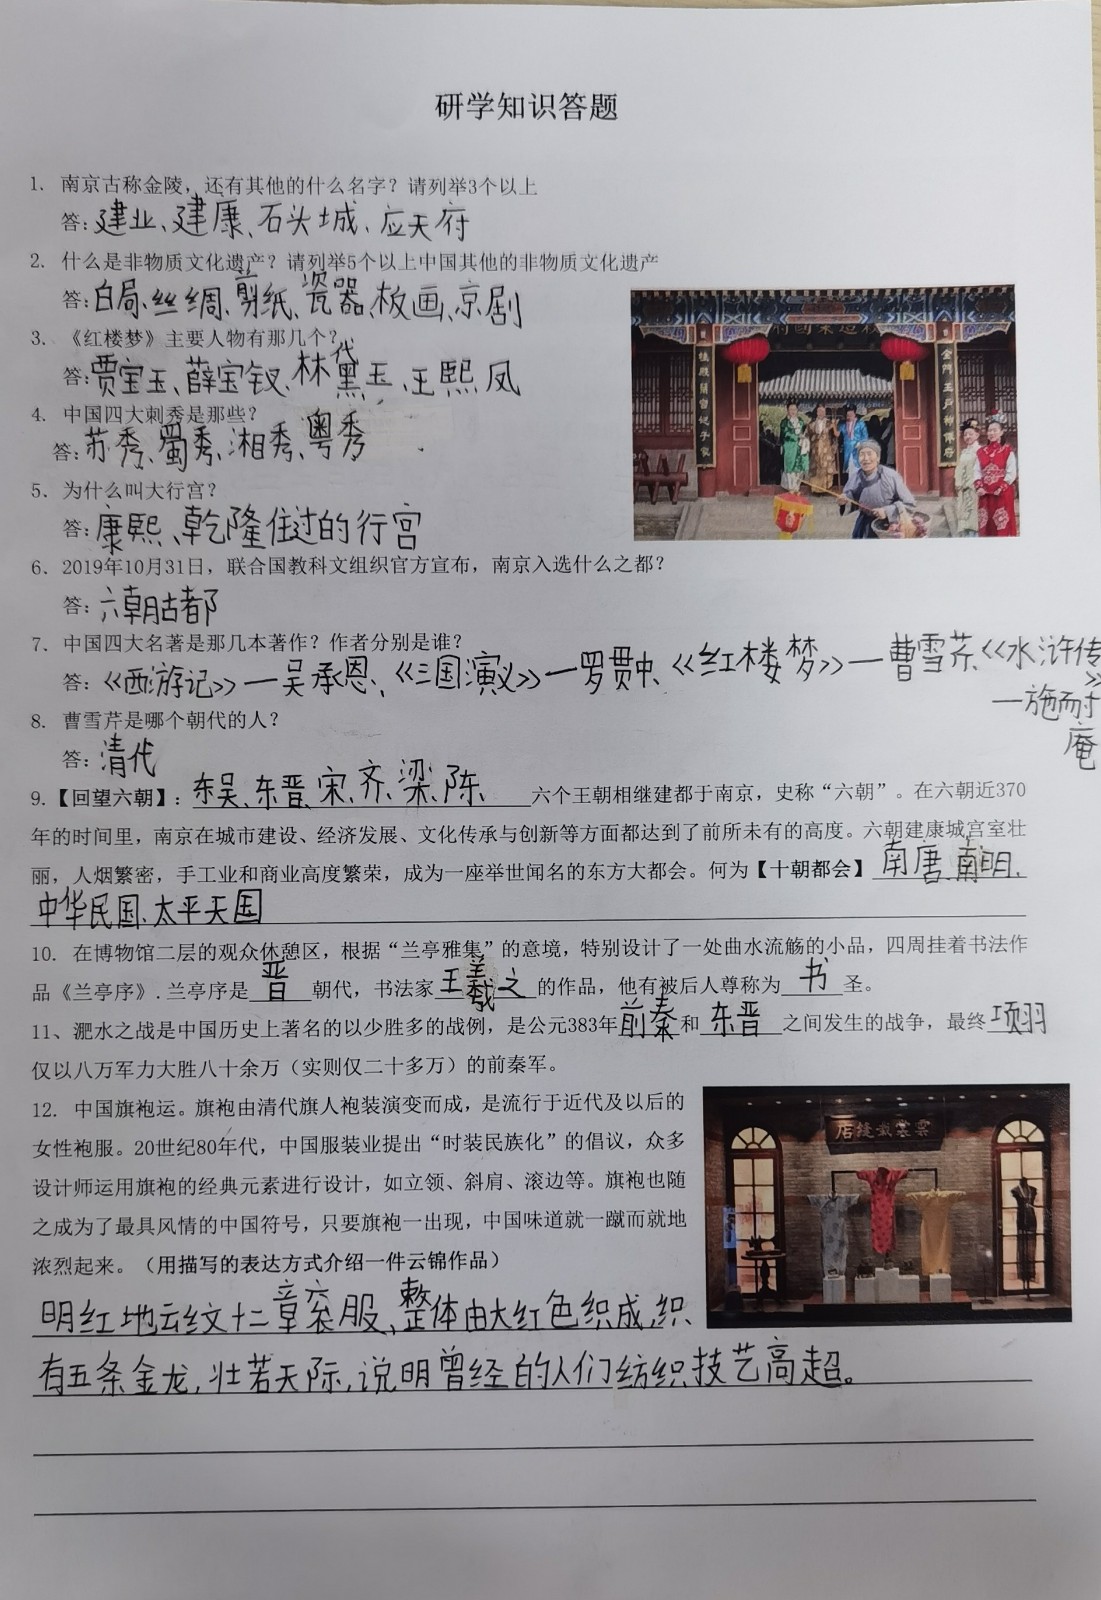 研学知识答题
1. 南京古称金陵，还有其他的什么名字？请列举3个以上
答：建业、建康、石头城、应天府
2. 什么是非物质文化遗产？请列举5个以上中国其他的非物质文化遗产
答：白局、丝绸、剪纸、瓷器、板画、京剧
3. 《红楼梦》主要人物有那几个？
答：贾宝玉、薛宝钗、林黛玉、王熙凤
4. 中国四大刺秀是那些？
答：苏秀、蜀秀、湘秀、粤秀
5. 为什么叫大行宫？
答：康熙、乾隆住过的行宫
6. 2019年10月31日，联合国教科文组织官方宣布，南京入选什么之都？
答：六朝古都
7. 中国四大名著是那几本著作？作者分别是谁？
答：《西游记》—吴承恩、《三国演义》—罗贯中、《红楼梦》—曹雪芹、《水浒传》
—施耐
庵
8. 曹雪芹是哪个朝代的人？
答：清代
9.【回望六朝】：东吴、东晋、宋、齐、梁、陈、六个王朝相继建都于南京，史称“六朝”。在六朝近370
年的时间里，南京在城市建设、经济发展、文化传承与创新等方面都达到了前所未有的高度。六朝建康城宫室壮
丽，人烟繁密，手工业和商业高度繁荣，成为一座举世闻名的东方大都会。何为【十朝都会】南唐、南明、
中华民国、太平天国
10. 在博物馆二层的观众休憩区，根据“兰亭雅集”的意境，特别设计了一处曲水流觞的小品，四周挂着书法作
品《兰亭序》.兰亭序是晋朝代，书法家王羲之的作品，他有被后人尊称为书圣。
11、淝水之战是中国历史上著名的以少胜多的战例，是公元383年前秦和东晋之间发生的战争，最终项羽
仅以八万军力大胜八十余万（实则仅二十多万）的前秦军。
12. 中国旗袍运。旗袍由清代旗人袍装演变而成，是流行于近代及以后的
女性袍服。20世纪80年代，中国服装业提出“时装民族化”的倡议，众多
设计师运用旗袍的经典元素进行设计，如立领、斜肩、滚边等。旗袍也随
之成为了最具风情的中国符号，只要旗袍一出现，中国味道就一蹴而就地
浓烈起来。（用描写的表达方式介绍一件云锦作品）
明红地云纹十二章衮服、整体由大红色织成，织
有五条金龙，壮若天际，说明曾经的人们纺织技艺高超。